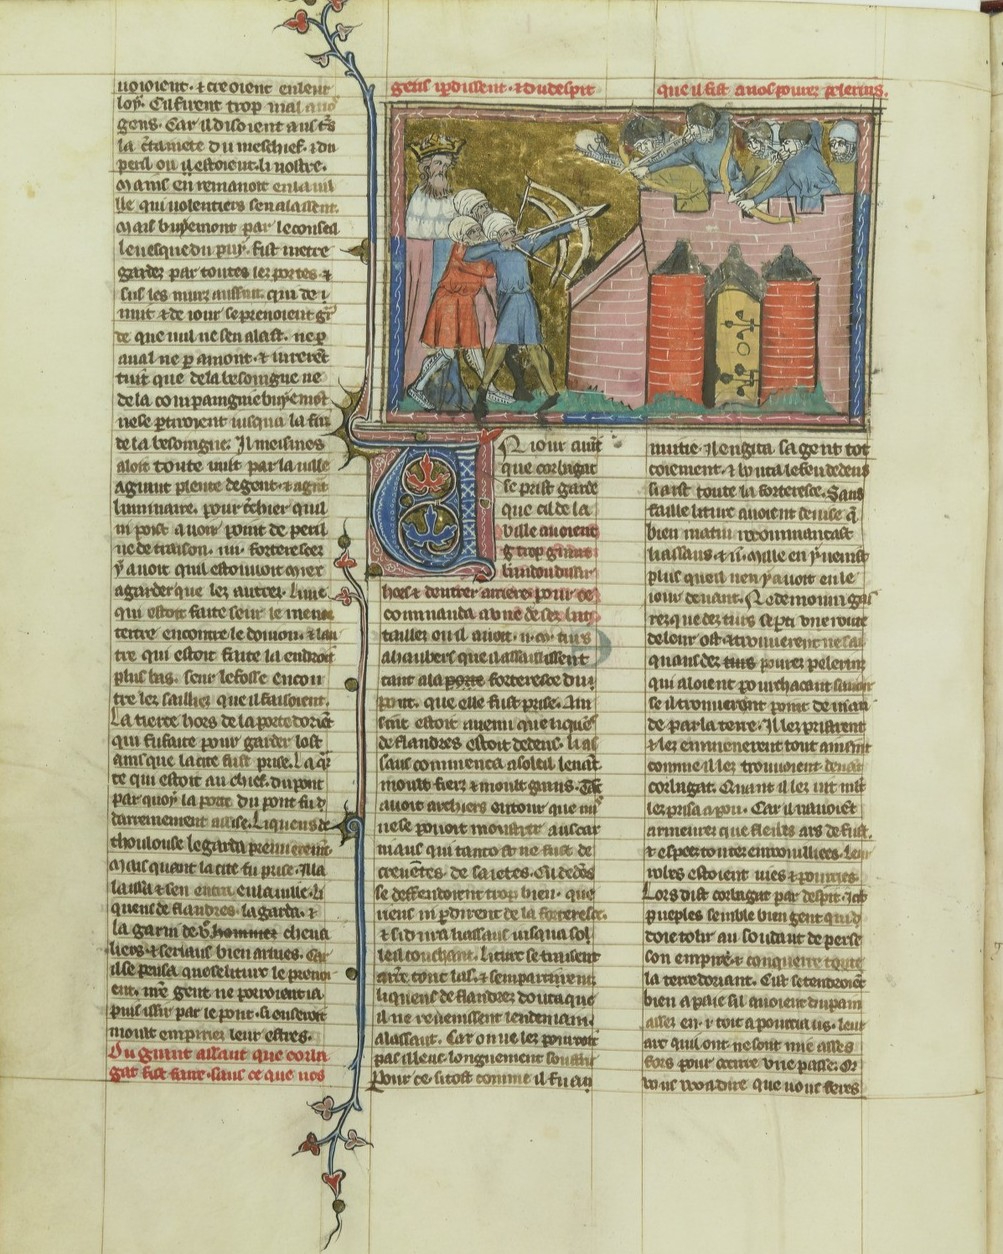 uoioient · ⁊ creoient en leur
loy · Cil firent trop mal a noz
gens · Car il disoient aus t̃s
la c̃tainete du meschief · ⁊ du
peril ou il estoient · li nostre ·
Mains en remanoit en la uil
le qui uolentiers sen alassent ·
Mais buyemont par le conseil
leuesque du puy · fist metre
garder par toutes lez portes · ⁊
sus les murz aussint · qui de i
nuit ⁊ de iour se prenoient gr̃
de que nul ne sen alast · ne p̲
aual ne p̲ amont · ⁊ iurerẽt
tuit que de la besoingne ne
de la compaingnie buyemont
ne se p̲tiroient iusqua la fin
de la besoingne · Il meismes
aloit toute nuit par la uille
a grant plente de gent · ⁊ a grãt
luminaire · pour c̃chier quil
ni post auoir point de peril
ne de traison · iiii · forteresces
y auoit quil estouuoit miex
a garder que lez autrez · Lune
qui estoit faite seur le menu
tertre encontre le doiuon · ⁊ lau
tre qui estoit faite la endroit
plus bas · seur le fosse encon
tre lez saillies que il faisoient ·
La tierce hors de la porte doriẽt
qui fu faite pour garder lost
ainsique la cite fust prise · La qr̃
te qui estoit au chief · du pont
par quoy la porte du pont fu d̃
darrenement assise · Li quens de
thoulouse le garda premierem̃t ·
Mais quant la cite fu prise · Illa
laissa ⁊ sen entra en la uille · Li
quens de flandres · la garda · ⁊
la garni de v̊ hommez cheua
liers · ⁊ seriaus bien armes ·
il se pensa que se li ture le prenoi
ent · nr̃e gent ne porroient ia
puis issir par le pont · si en seroit
moult empiriez leur estres ·
Du grant assaut que corba
gat fist faire · sans ce que nos
gens p̲dissent · ⁊ du despit
que il fist a nos pourez pelerins ·
Un iour auĩt
que corbagat
se prist garde
que cil de la
uille auoient
trop grant
bandon dissir
hors ⁊ dentrer arrieres pour ce
commanda a une de sez ba
tailles ou il auoit · ii · m · turs
a haubers que il assaillissent
tant a la porte forteresce du
pont · que elle fust prise · Ain
sint estoit auenu que li quẽs
de flandres estoit dedens · Li as
saus commenca a soleil leuãt
moult fiers ⁊ moult grans ·
auoit archiers entour que nuls
ne se pooit moustrer aus car
niaus qui tantost ne fust de
creuentes de saietes · Cil dedẽs
se deffendoient trop bien · que
riens ni p̲dirent de la forteresce ·
⁊ si dura lassaus iusqua sol
leil couchant · Li turc se traisent
arr̃e tout las · ⁊ sempartirent
li quens de flandrez douta que
il ne reuenissent lendemain ·
a lassaut · Car on ne lez pourroit
pas illeuc longuement souffrir
Pour ce si tost comme il fu an
nuitie · Il en gita sa gent tot
coiement · ⁊ bouta le feu dedens
si arst toute la forteresce · Sans
faille li turc auoient deuise q̃
bien matin recommencast
lassaus · ⁊ · ii · mille en y uenist
plus que il nen y auoit eu le
iour deuant · Ne demoura gai
rez que dez turs se p̲ti une route
de leur ost ⁊ trouuerent ne sai
quans dez turs pourez pelerinz
qui aloient pourchacant sauoir
se il trouueroient point de uian
de par la terre · Il lez pristrent
⁊ lez enmenerent tout ainsint
comme il lez trouuoient deuãt
corbagat · Quant il lez uit mlt̃
lez prisa a pou · Car il nauoiẽt
armeures que fleiblez ars de fust ·
⁊ espees toutez enrouilliees · Leur
robes estoient uiez ⁊ pourries ·
Lors dist corbagat par despit · Icis
pueples semble bien gent qui d
doie tolir au soudant de perse
son empire ⁊ conquerre toute
la terre doriant · Cist se tendroiẽt
bien a paie sil auoient du pain
assez en
arc quil ont ne sont mie asses
fors pour ocirre une passe · Or
uous uoi a dire que uous feres